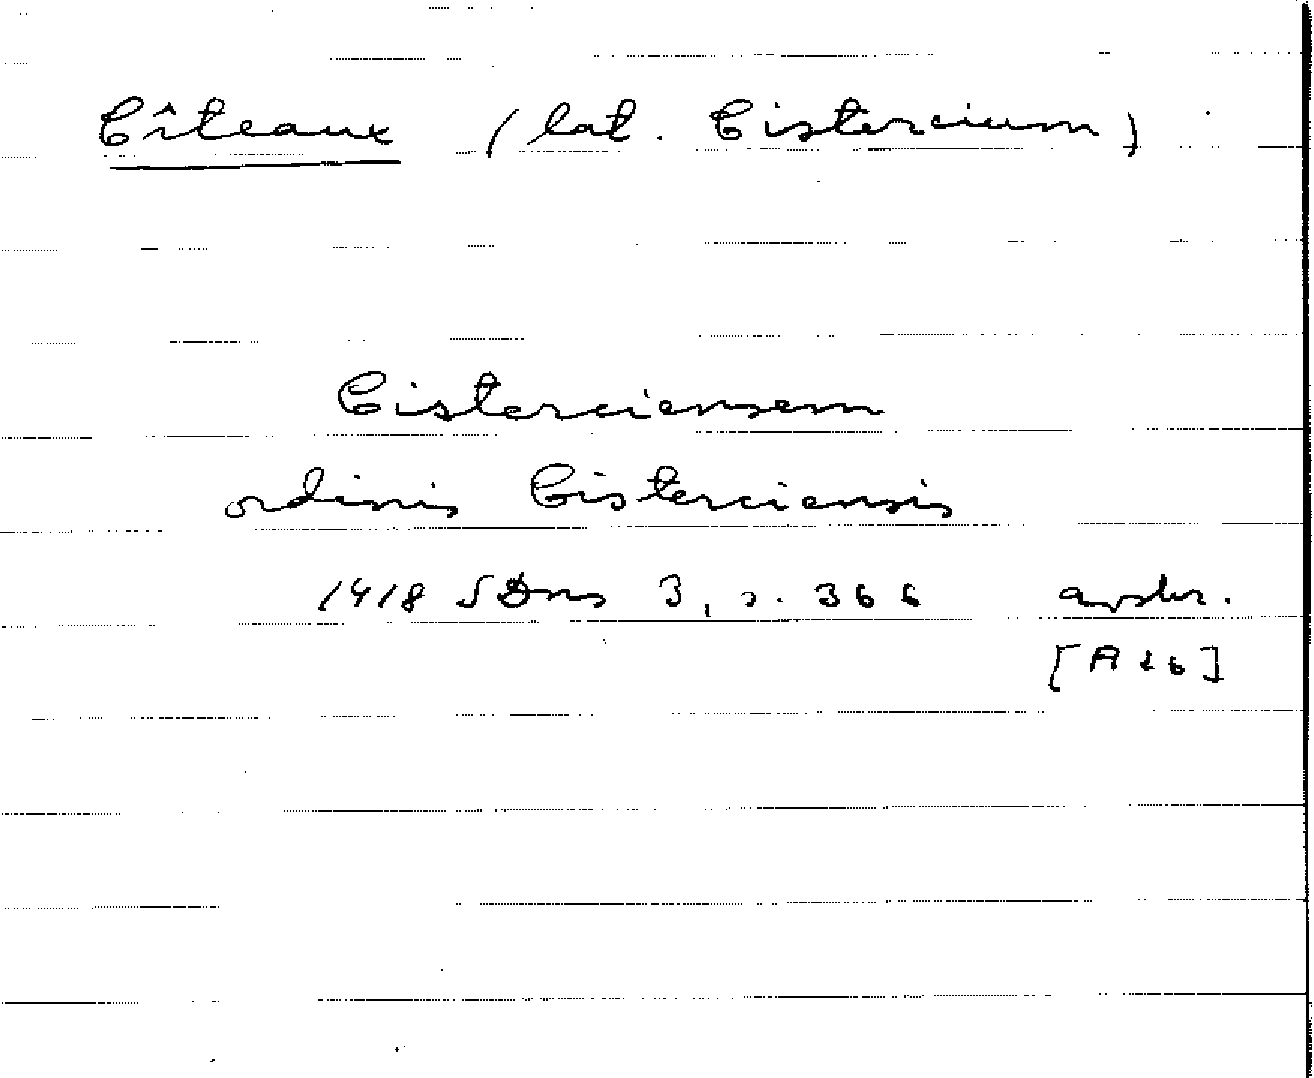 Cîteaux (lat. Cistercium)
Cisterciensem
ordinis Cisterciensis
1418 SDns 3, s. 366 avskr.
[A 26]